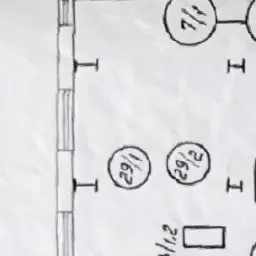 7/1
29/1
29/2
/1.2